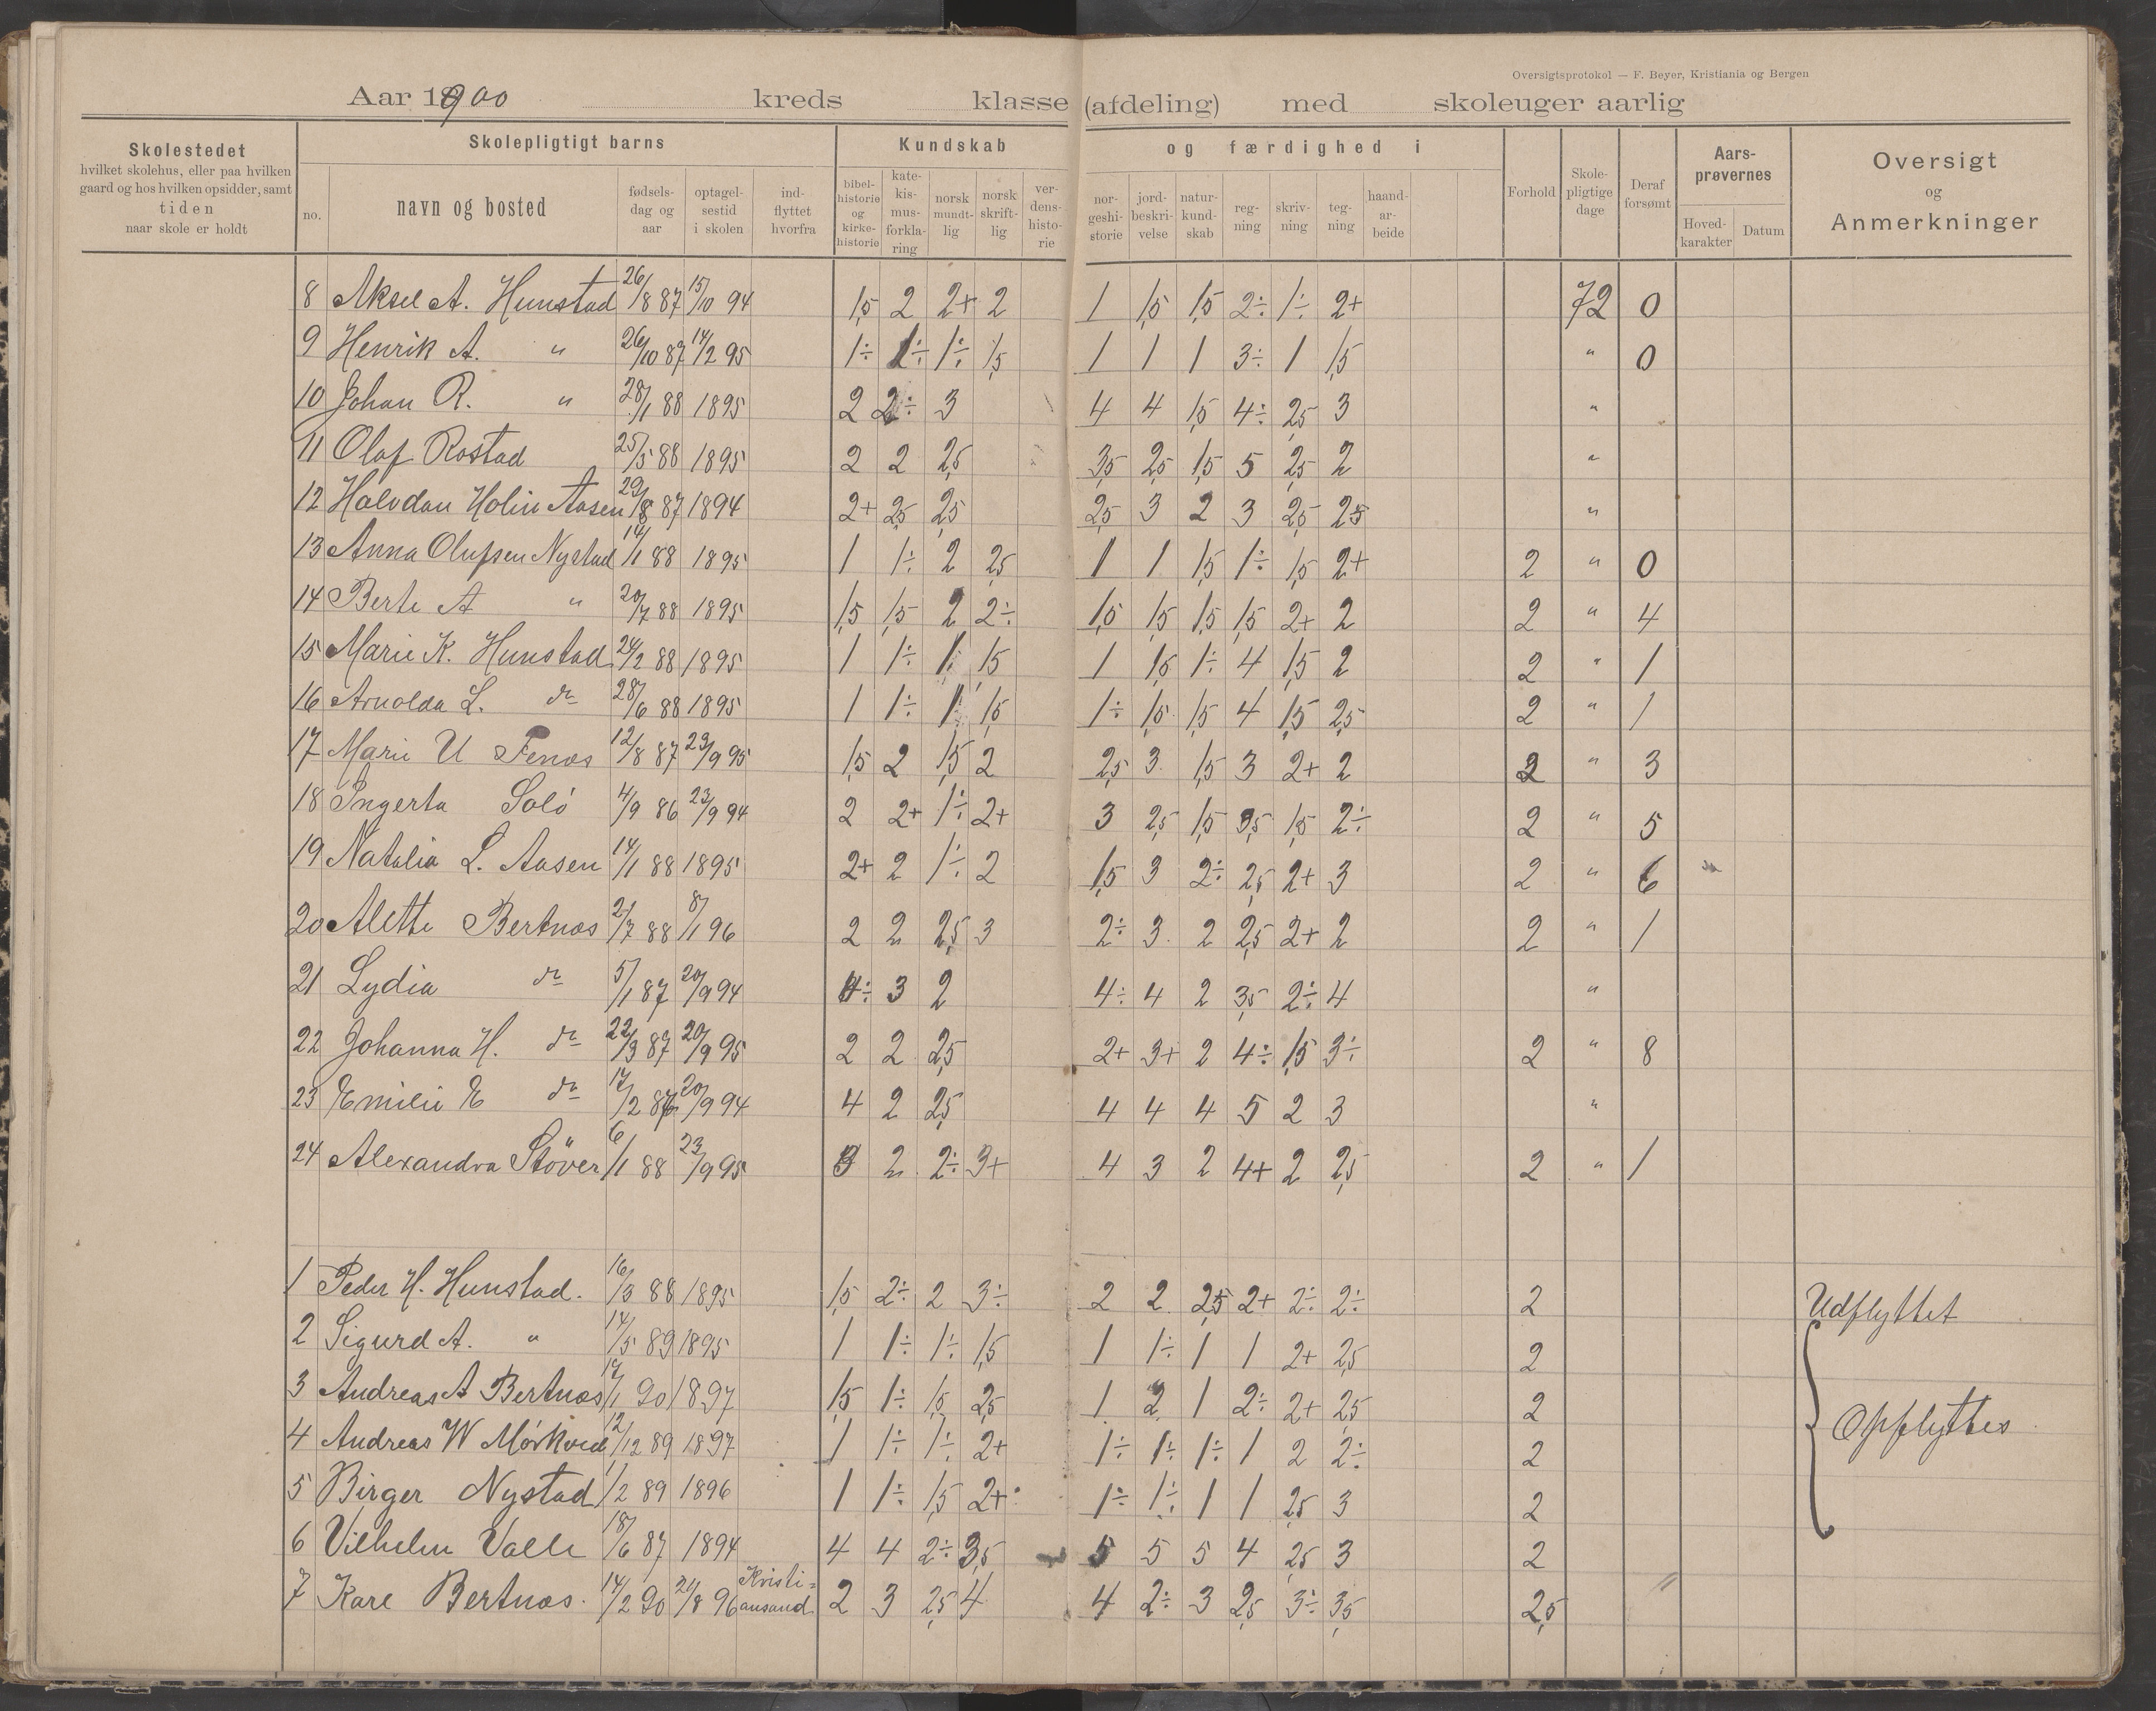 Oversigtsprotokol — F. Beyer, Kristiania og Bergen
Aar 1900 kreds klasse (afdeling) med skoleuger aarlig
Skolestedet
hvilket skolehus, eller paa hvilken
gaard og hos hvilken opsidder, samt
tiden
naar skole er holdt
Skolepligtigt barns
no.
navn og bosted
fødsels-
dag og
aar
optagel-
sestid
i skolen
ind-
flyttet
hvorfra
Kundskab og færdighed i
bibel-
historie
og
kirke-
historie
kate-
kis-
mus-
forkla-
ring
norsk
mundt-
lig
norsk
skrift-
lig
ver-
dens-
histo-
rie
nor-
geshi-
storie
jord-
beskri-
velse
natur-
kund-
skab
reg-
ning
skriv-
ning
teg-
ning
haand-
ar-
beide
Forhold
Skole-
pligtige
dage
Deraf
forsømt
Aars-
prøvernes
Hoved-
karakter
Datum
Oversigt
og
Anmerkninger
8 Aksel A. Hunstad 26/8 87 15/10 94 1,5 2 2+ 2 1 1,5 1,5 2÷ 1÷ 2+ 72 0
9 Henrik A. " 26/10 87 14/2 95 1÷ 1÷ 1÷ 1,5 1 1 1 3÷ 1 1,5 " 0
10 Johan R. " 28/1 88 1895 2 2÷ 3 4 4 1,5 4÷ 2,5 3 "
11 Olaf Rostad 25/5 88 1895 2 2 2,5 3,5 2,5 1,5 5 2,5 2 "
12 Halvdan Holm Aasen 29/8 87 1894 2+ 2,5 2,5 2,5 3 2 3 2,5 2,5 "
13 Anna Olufsen Nystad 14/1 88 1895 1 1÷ 2 2,5 1 1 1,5 1÷ 1,5 2+ 2 " 0
14 Berte A " 20/7 88 1895 1,5 1,5 2 2÷ 1,5 1,5 1,5 1,5 2+ 2 2 " 4
15 Marie K. Hunstad 24/2 88 1895 1 1÷ 1 1,5 1 1,5 1÷ 4 1,5 2 2 " 1
16 Arnolda L. do 28/6 88 1895 1 1÷ 1 1,5 1÷ 1,5 1,5 4 1,5 2,5 2 " 1
17 Marie U Fenæs 12/8 87 23/9 95 1,5 2 1,5 2 2,5 3 1,5 3 2+ 2 2 " 3
18 Ingerta Solö 4/9 86 23/9 94 2 2+ 1÷ 2+ 3 2,5 1,5 3,5 1,5 2÷ 2 " 5
19 Natalia L. Aasen 14/1 88 1895 2+ 2 1÷ 2 1,5 3 2÷ 2,5 2+ 3 2 " 6
20 Alette Bertnæs 21/7 88 8/1 96 2 2 2,5 3 2÷ 3 2 2,5 2+ 2 2 " 1
21 Lydia do 5/1 87 20/9 94 4÷ 3 2 4÷ 4 2 3,5 2÷ 4 "
22 Johanna H. do 22/3 87 20/9 95 2 2 2,5 2+ 3+ 2 4÷ 1,5 3÷ 2 " 8
23 Emilie E do 17/2 86 20/9 94 4 2 2,5 4 4 4 5 2 3 "
24 Alexandra Stöver 6/1 88 23/9 95 3 2 2÷ 3+ 4 3 2 4+ 2 2,5 2 " 1
1 Peder H. Hunstad. 16/3 88 1895 1,5 2÷ 2 3÷ 2 2 2,5 2+ 2÷ 2÷ 2 Udflyttet
2 Sigurd A. " 14/5 89 1895 1 1÷ 1÷ 1,5 1 1÷ 1 1 2+ 2,5 2
3 Andreas A Bertnæs 17/1 90 1897 1,5 1÷ 1,5 2,5 1 2 1 2÷ 2+ 2,5 2 Opflyttes
4 Andreas W Mørkved 12/12 89 1897 1 1÷ 1÷ 2+ 1÷ 1÷ 1÷ 1 2 2÷ 2
5 Birger Nystad 1/2 89 1896 1 1÷ 1,5 2+ 1÷ 1÷ 1 1 2,5 3 2
6 Vilhelm Valle 18/6 87 1894 4 4 2÷ 3,5 5 5 5 4 2,5 3 2
7 Kare Bertnæs. 14/2 90 21/8 96 Kristi=
ansand 2 3 2,5 4 4 2÷ 3 2,5 3÷ 3,5 2,5